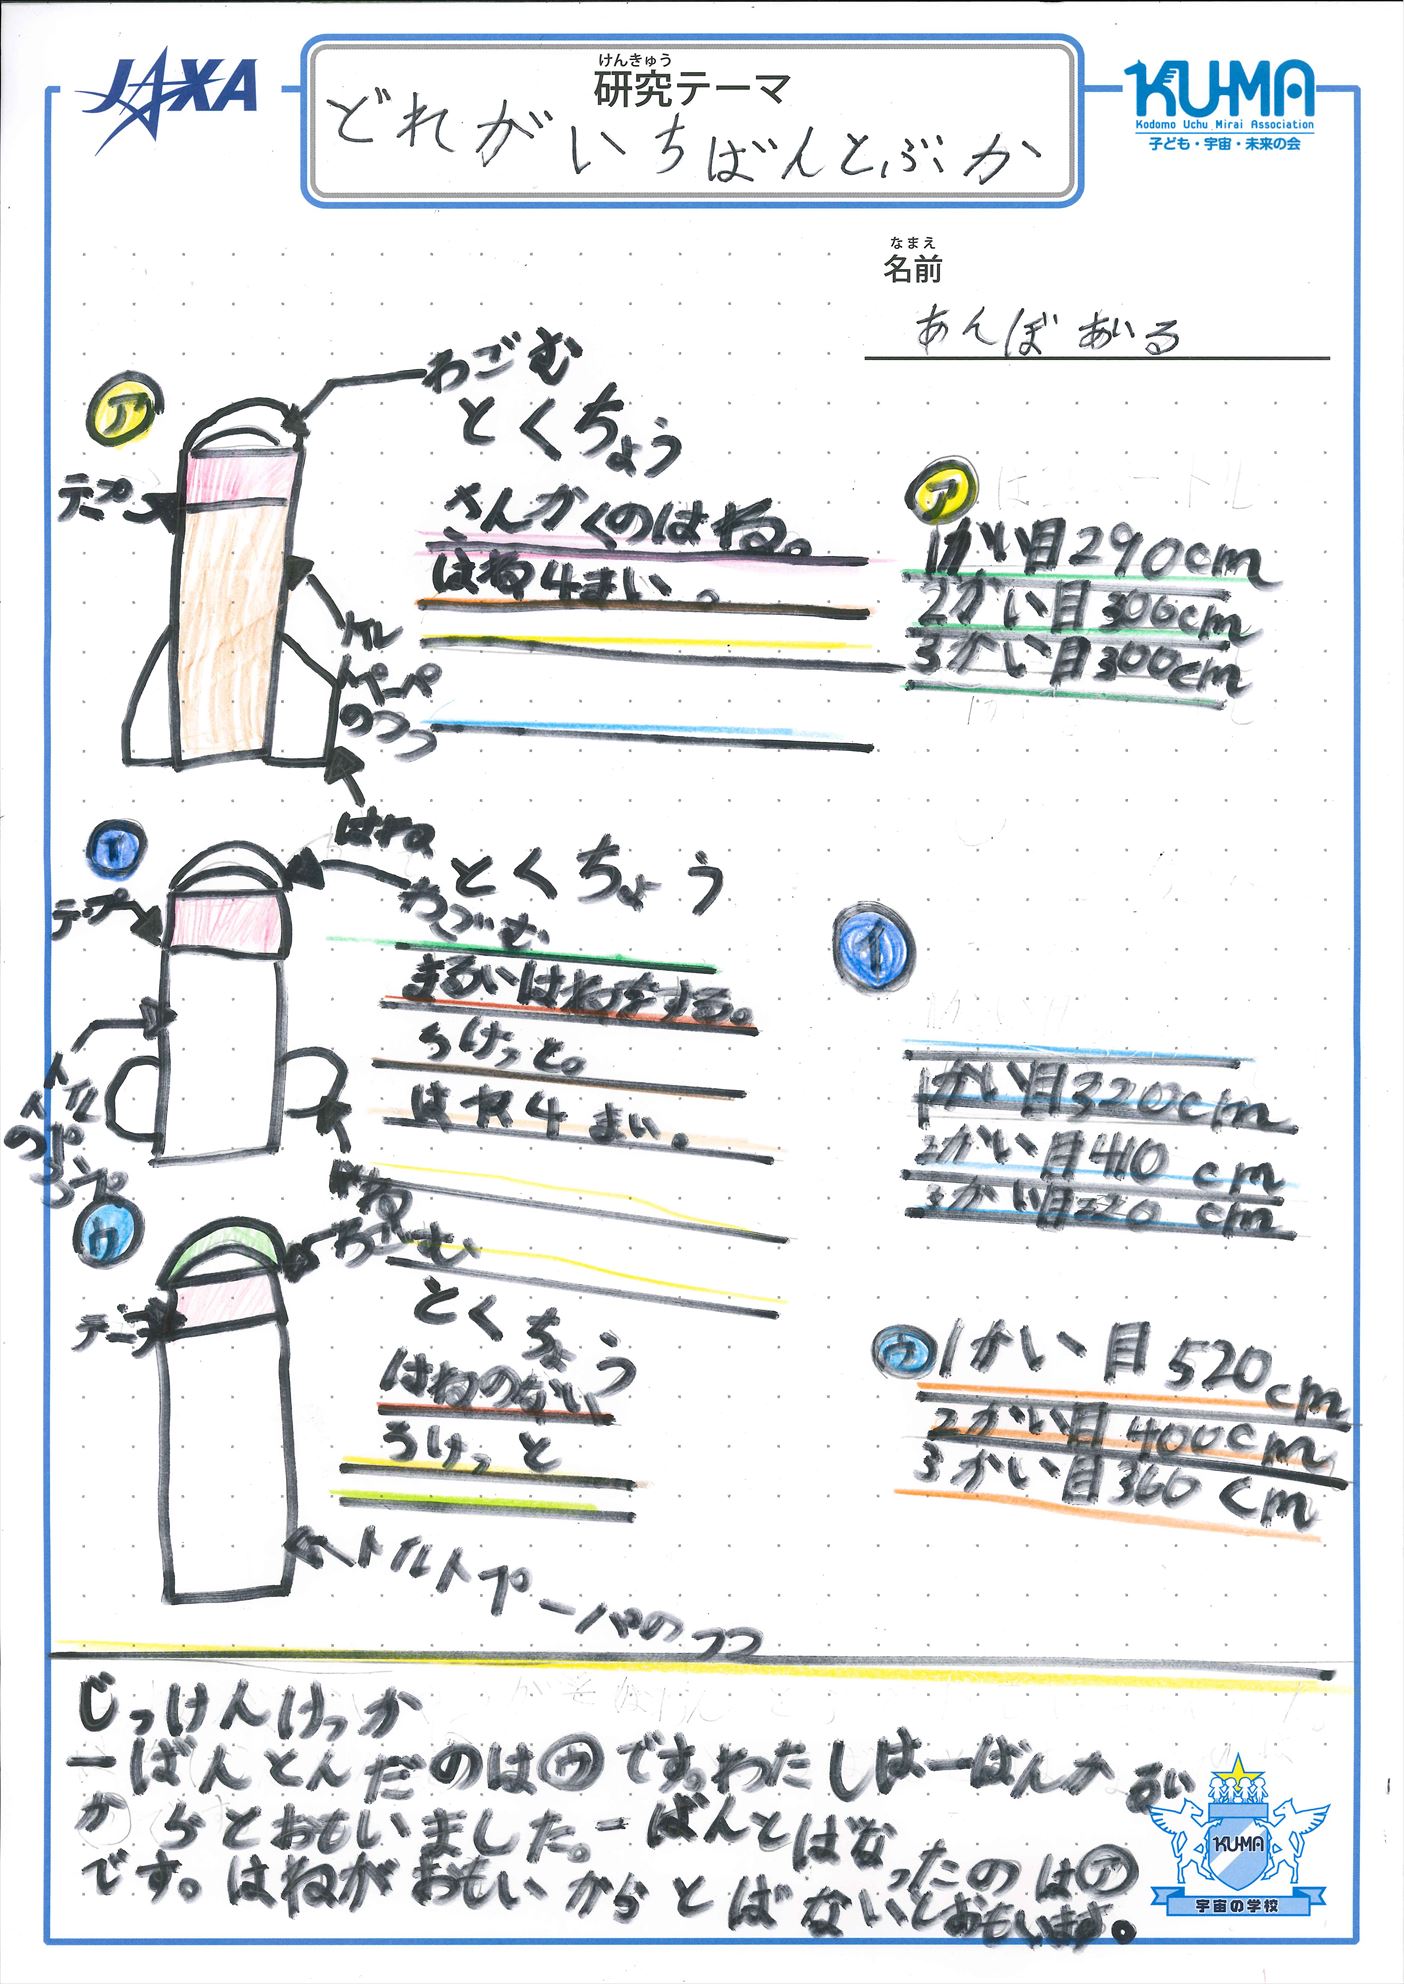 JAXA
けんきゅう
研究テーマ
どれがいちばんとぶか
KU-MA
Kodomo Uchu Mirai Association
子ども・宇宙・未来の会
なまえ
名前
あんぼ あいる
ア
わごむ
とくちょう
テープ
さんかくのはね。
はね4まい。
トイレ
トペーパ
のつつ
はね
ア
1かい目290cm
2かい目300cm
3かい目300cm
イ
わごむ
とくちょう
テープ
まるいはねをする。
ろけっと。
はね4まい。
はね
イ
1かい目320cm
2かい目410cm
3かい目320cm
ウ
わごむ
とくちょう
テープ
はねのない
ろけっと
トイルトペーパのつつ
ウ
1かい目520cm
2かい目400cm
3かい目360cm
じっけんけっか
一ばんとんだのはウです。わたしは一ばんかるい
からとおもいました。一ばんとばなったのはア
です。はねがおもいからとばないとおもいます。
KU-MA
宇宙の学校